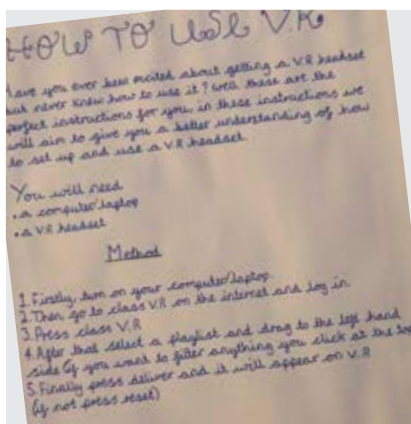 HOW TO USE V.R
Have you ever been excited about getting a V.R headset
but never knew how to use it? well these are the
perfect instructions for you in these instructions we
will aim to give you a better understanding of how
to set up and use a V.R headset.
You will need
• a computer/laptop
• a V.R headset
Method
1. Firstly, turn on your computer/laptop.
2. Then go to class V.R on the internet and log in
3. Press class V.R
4. After that select a playlist and drag to the left hand
side (if you want to filter anything you click at the top
5. Finally press deliver and it will appear on V.R
(if not press reset)